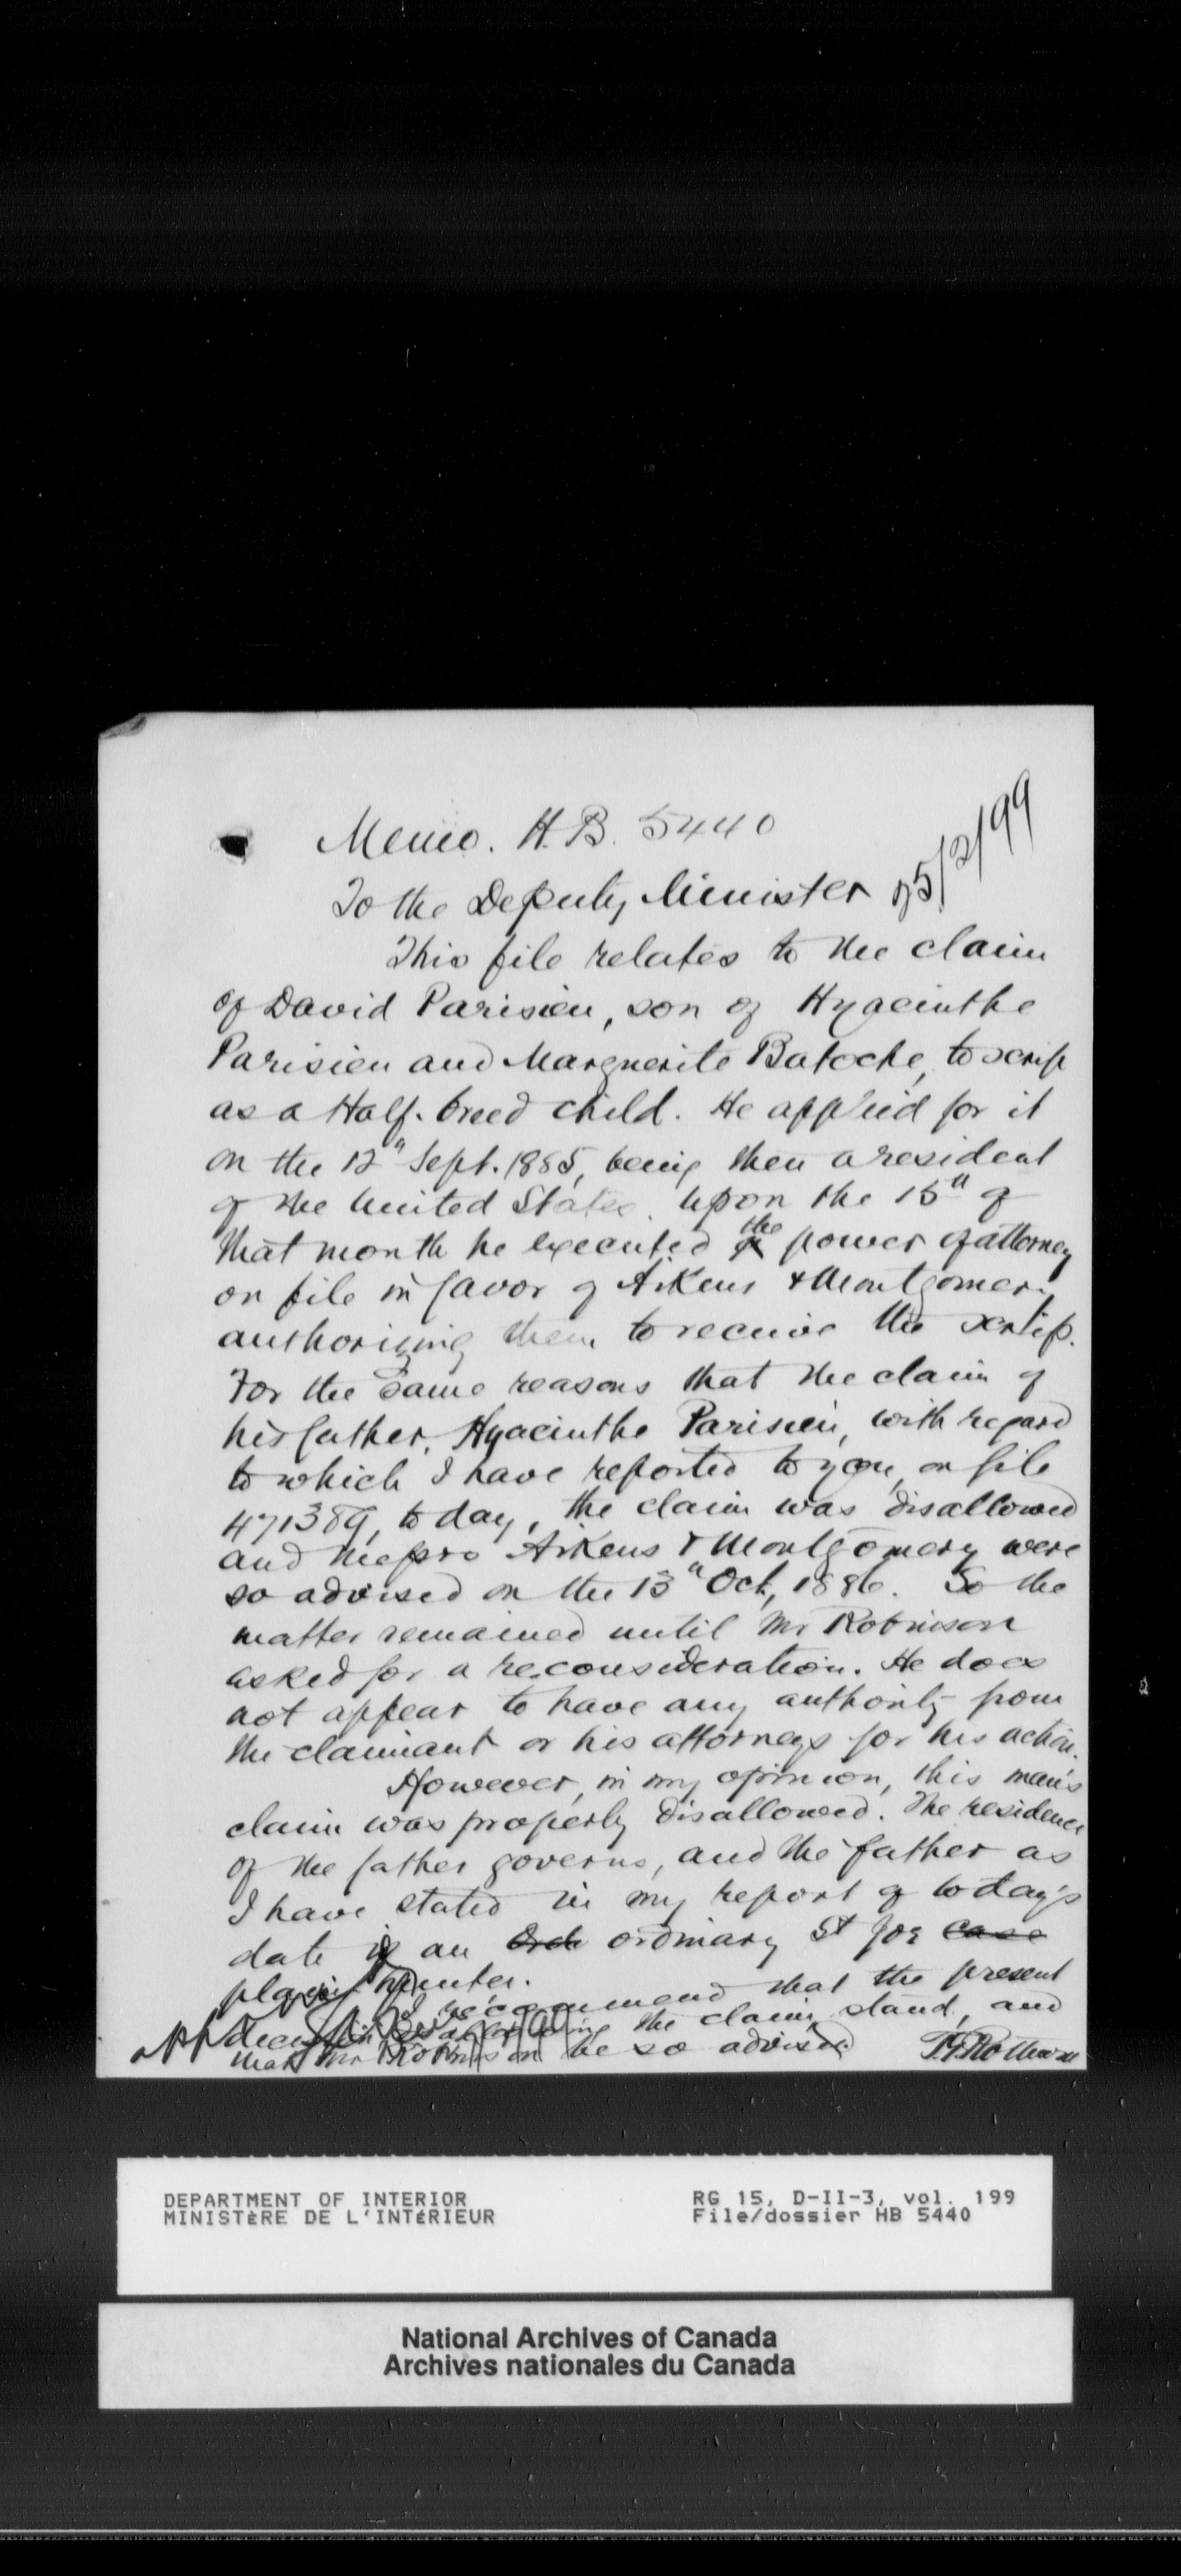 Memo. H.B. 5440
To the Deputy Minister 25/2/99
This file relates to the claim
of David Parisien, son of Hyacinthe
Parisien and Marguerite Batoche, to scrip
as a Half-breed child. He applied for it
on the 12" Sept. 1885, being then a resident
of the United States. Upon the 15" of
the
that month he executed a power of attorney
on file in favor of Aikens & Montgomery
authorizing them to receive the scrip.
For the same reasons that the claim of
his father, Hyacinthe Parisien, with regard
to which I have reported to you, on file
471389, to day, the claim was disallowed
and Messrs Aikens & Montgomery were
so advised on the 13" Oct, 1886. So the
matter remained until Mr Robinson
asked for a reconsideration. He does
not appear to have any authority from
the claimant or his attorneys for his action.
However, in my opinion, this man's
claim was properly disallowed. The residence
of the father governs, and the father as
I have stated in my report of today's
date is an ordinary St Joe case
plain hunter.
I recommend that the present
decision disallowing the claim stand, and
that Mr Robinson be so advised
DEPARTMENT OF INTERIOR
MINISTÈRE DE L'INTÉRIEUR
RG 15, D-II-3, vol. 199
File/dossier HB 5440
National Archives of Canada
Archives nationales du Canada